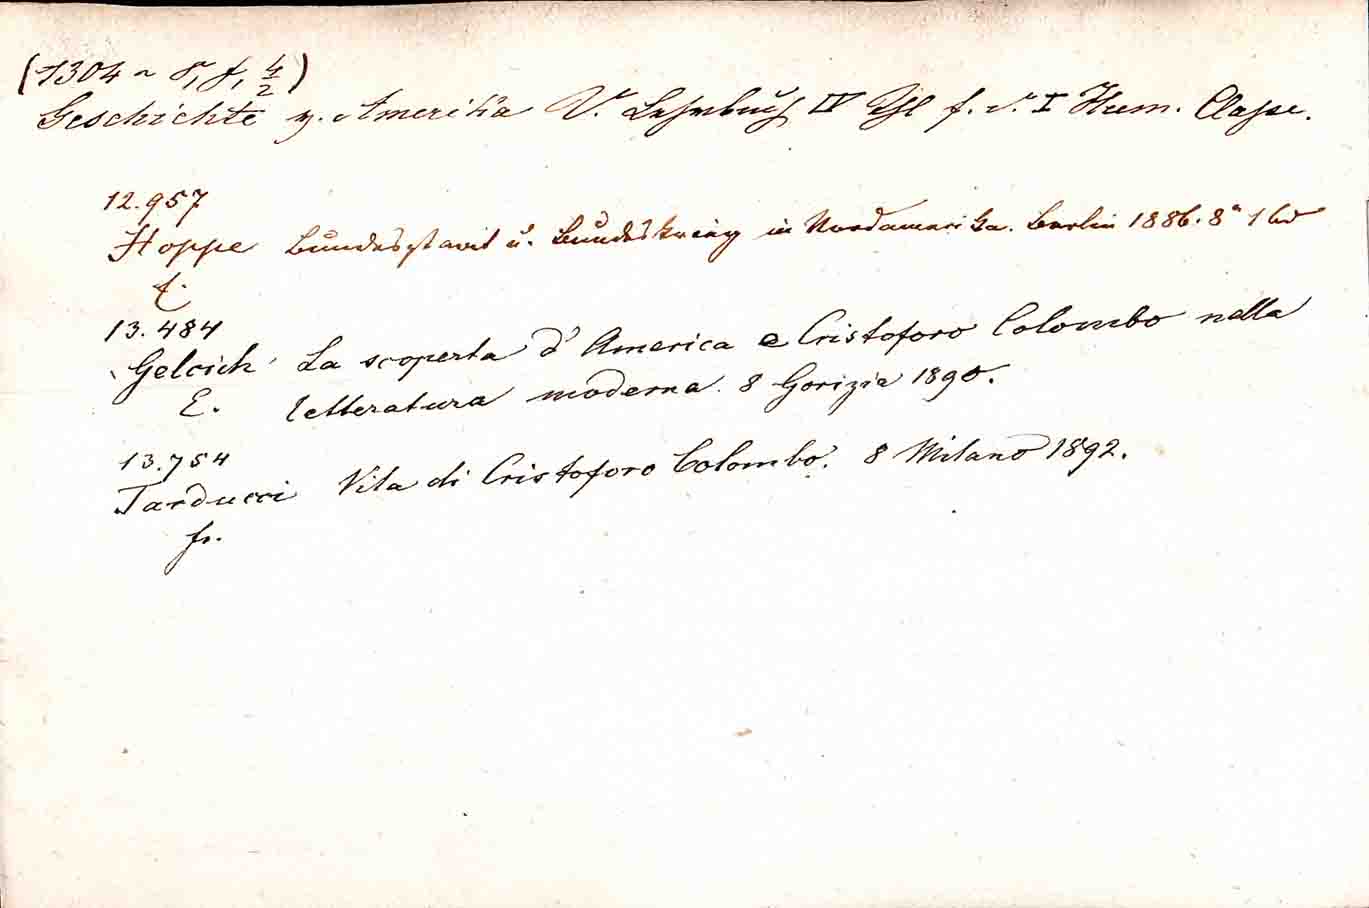 (1304 ~ 8, f, 4/2)
Geschichte v. Amerika V. Lehrbuch IV Thl f. d. I Hum. Classe.
12.957
Hoppe Bundesstaat u. Bundeskrieg in Nordamerika. Berlin 1886. 8° 1 Bd
E.
13.484
Gelcich La scoperta d'America e Cristoforo Colombo nella
E. letteratura moderna. 8 Gorizia 1890.
13.754
Tarducci Vita di Cristoforo Colombo. 8 Milano 1892.
fr.